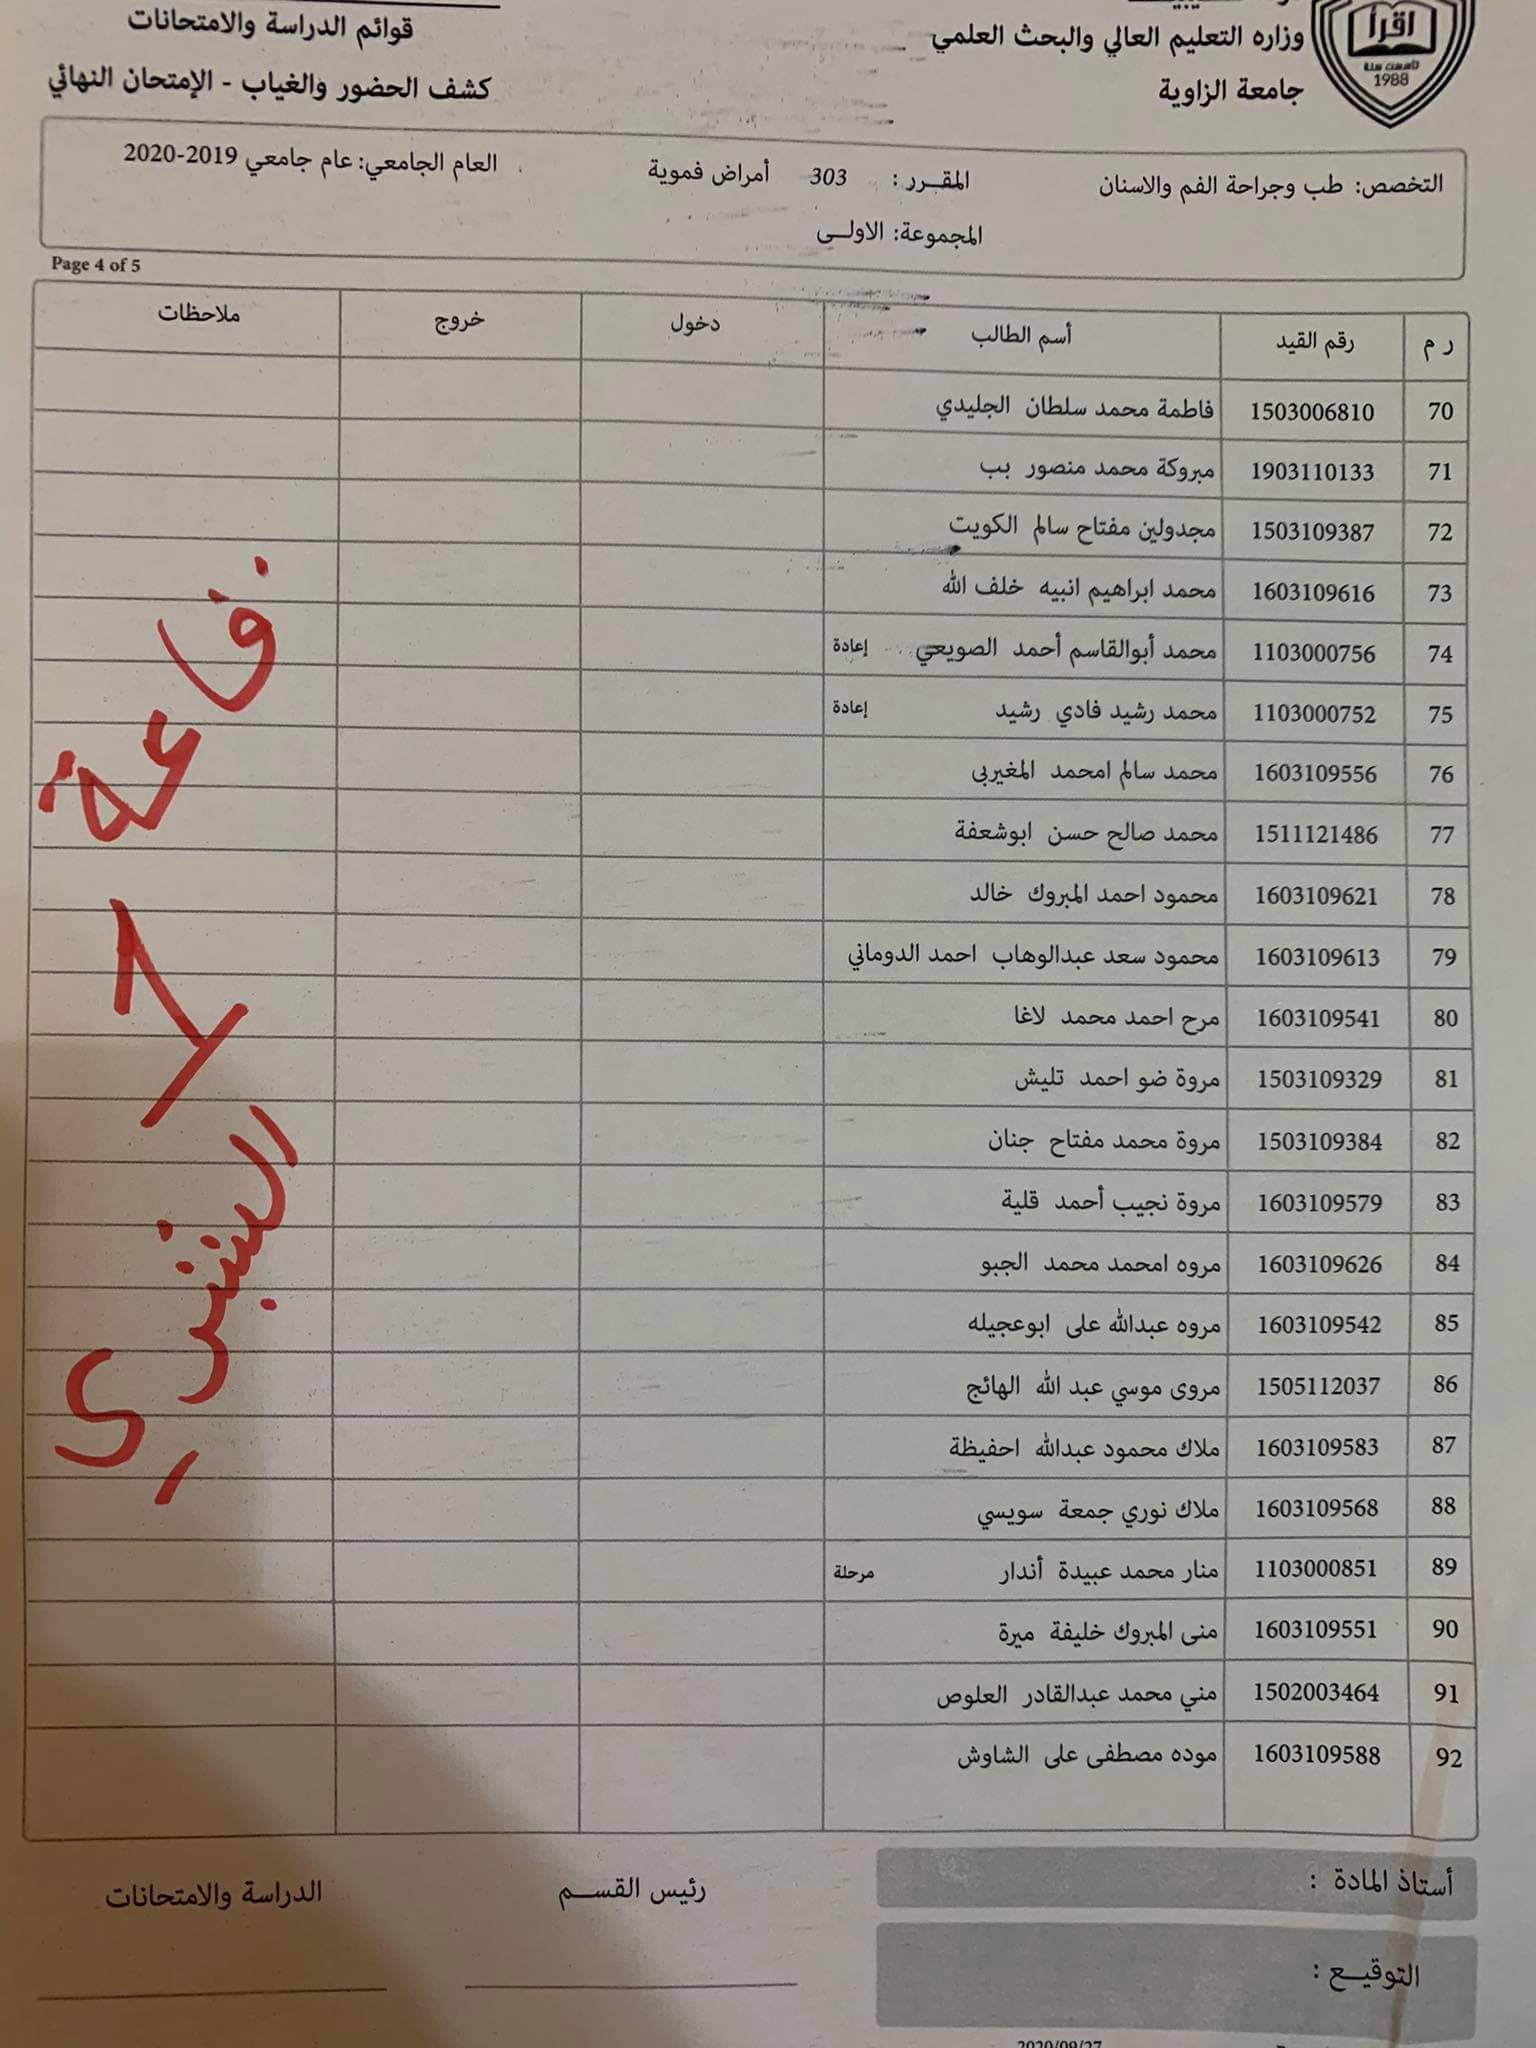 اقرأ
تأسست سنة
1988
وزاره التعليم العالي والبحث العلمي
جامعة الزاوية
قوائم الدراسة والامتحانات
كشف الحضور والغياب - الإمتحان النهائي
التخصص: طب وجراحة الفم والاسنان المقـرر : 303 أمراض فموية العام الجامعي: عام جامعي 2019-2020
المجموعة: الاولـى
Page 4 of 5
ر م رقم القيد أسم الطالب دخول خروج ملاحظات
70 1503006810 فاطمة محمد سلطان الجليدي
71 1903110133 مبروكة محمد منصور بب
72 1503109387 مجدولين مفتاح سالم الكويت
73 1603109616 محمد ابراهيم انبيه خلف الله
74 1103000756 محمد أبوالقاسم أحمد الصويعي إعادة
75 1103000752 محمد رشيد فادي رشيد إعادة
76 1603109556 محمد سالم امحمد المغيربى
77 1511121486 محمد صالح حسن ابوشعفة
78 1603109621 محمود احمد المبروك خالد
79 1603109613 محمود سعد عبدالوهاب احمد الدوماني
80 1603109541 مرح احمد محمد لاغا
81 1503109329 مروة ضو احمد تليش
82 1503109384 مروة محمد مفتاح جنان
83 1603109579 مروة نجيب أحمد قلية
84 1603109626 مروه امحمد محمد الجبو
85 1603109542 مروه عبدالله على ابوعجيله
86 1505112037 مروى موسي عبد الله الهائج
87 1603109583 ملاك محمود عبدالله احفيظة
88 1603109568 ملاك نوري جمعة سويسي
89 1103000851 منار محمد عبيدة أندار مرحلة
90 1603109551 منى المبروك خليفة ميرة
91 1502003464 مني محمد عبدالقادر العلوص
92 1603109588 موده مصطفى على الشاوش
قاعة 1
أستاذ المادة :
التوقيـع :
رئيس القسـم
الدراسة والامتحانات
2020/09/27